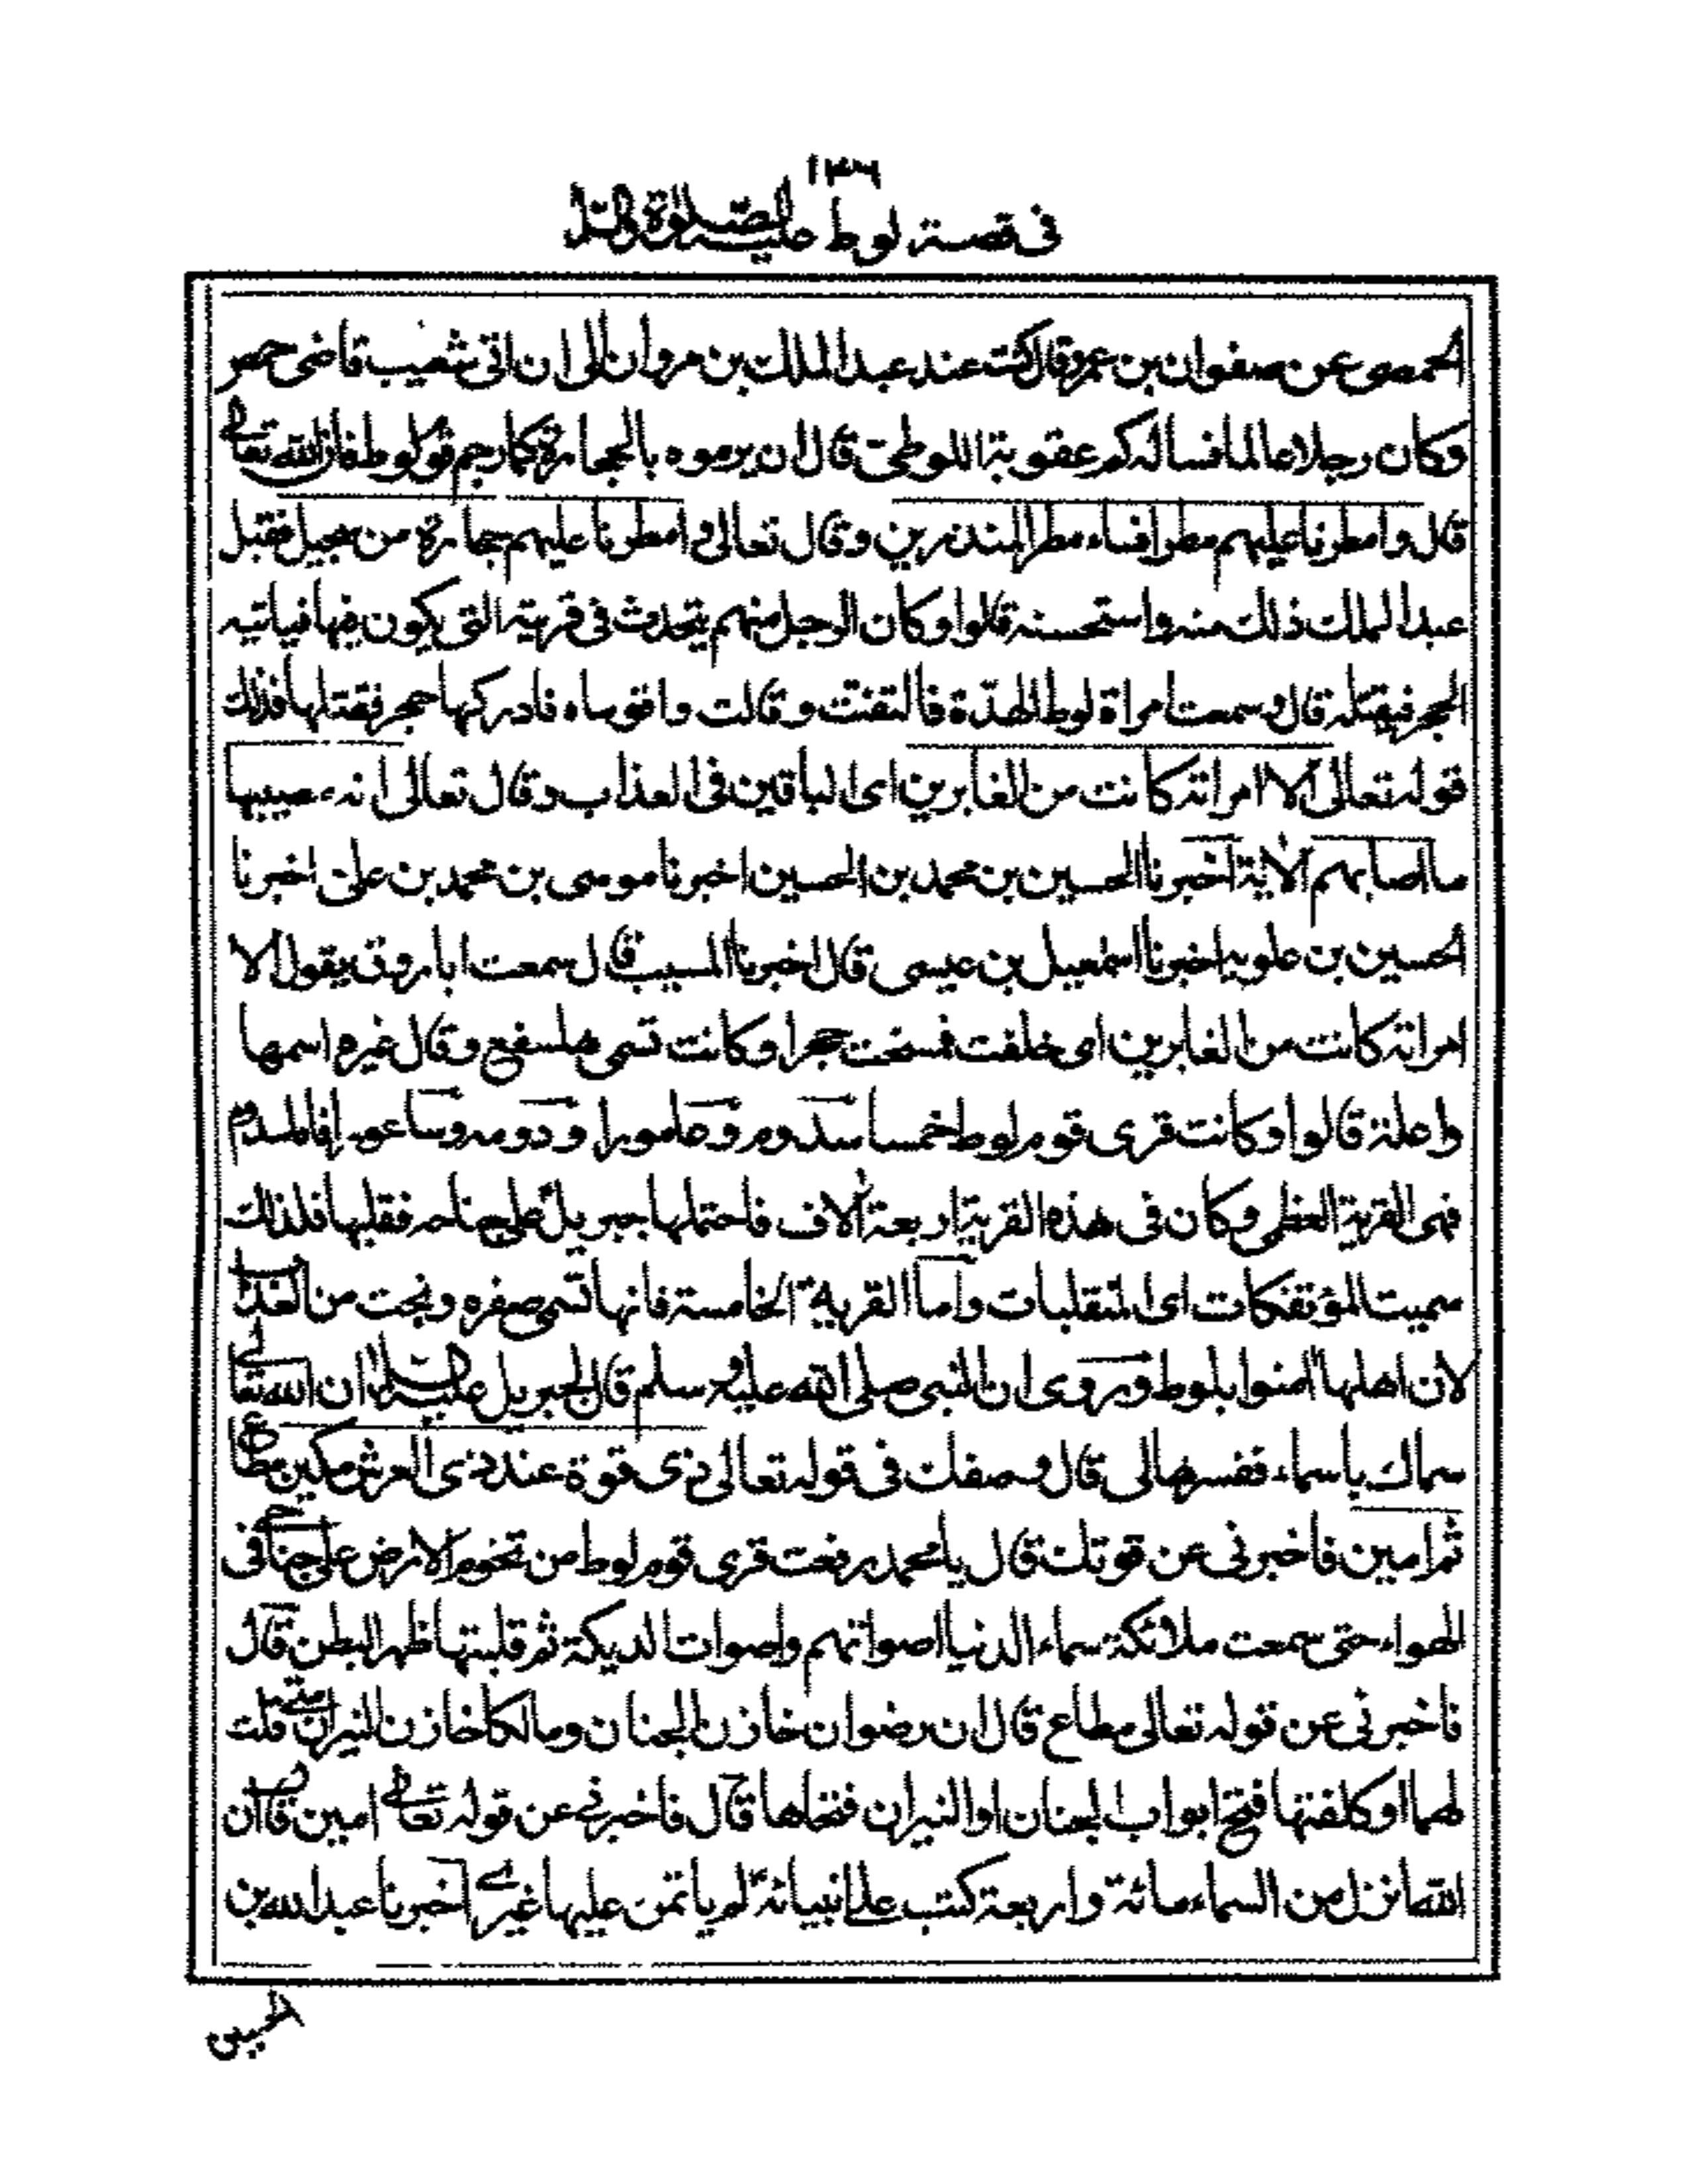 ١٣٦
فى قصة لوط عليه الصلوة والسلا
الحمصى عن صفوان بن عمرو قال كنت عند عبد الملك بن مروان الى ان اتى شعيب قاضى حمص
وكان رجلا عالما فساله كم عقوبة اللوطى قال ان يرموه بالحجارة كما رجم قوم لوط فان الله تعالى
قال وامطرنا عليهم مطرا فساء مطر المنذرين وقال تعالى وامطرنا عليهم حجارة من سجيل فقبل
عبد الملك ذلك منه واستحسنه قالوا وكان الرجل منهم يتحدث فى قريته التى يكون فيها فياتيه
الحجر فيقتله قال وسمعت امراة لوط الهدّة فالتفتت وقالت واقوماه فادركها حجر فقتلها فذلك
قوله تعالى الا امراته كانت من الغابرين اى الباقين فى العذاب وقال تعالى انه مصيبها
ما اصابهم الاية اخبرنا الحسين بن محمد بن الحسين اخبرنا موسى بن محمد بن على اخبرنا
الحسين بن علويه اخبرنا اسمعيل بن عيسى قال اخبرنا المسيب قال سمعت ابا روق يقول الا
امراته كانت من الغابرين اى خلفت فمسخت حجرا وكانت تسمى هلسفع وقال غيره اسمها
واعلة قالوا وكانت قرى قوم لوط خمسا سدوم وعامورا ودومه وساعورا فاما سدوم
فهى القرية العظمى وكان فى هذه القرية اربعة الاف فاحتملها جبريل على جناحه فقلبها فلذلك
سميت المؤتفكات اى المنقلبات واما القرية الخامسة فانها تسمى صغره ونجت من العذاب
لان اهلها امنوا بلوط وروى ان النبى صلى الله عليه وسلم قال لجبريل عليه السلام ان الله تعالى
سماك باسماء ففسرها لى قال وصفك فى قوله تعالى ذى قوة عند ذى العرش مكين مطاع
ثم امين فاخبرنى عن قوتك قال يا محمد رفعت قرى قوم لوط من تخوم الارض على جناحى فى
الهواء حتى سمعت ملائكة سماء الدنيا اصواتهم واصوات الديكة ثم قلبتها ظهرا لبطن قال
فاخبرنى عن قوله تعالى مطاع قال ان رضوان خازن الجنان ومالكا خازن النيران متى ما قلت
لهما او كلفتها فتح ابواب الجنان او النيران فتحاها قال فاخبرنى عن قوله تعالى امين قال ان
الله ما نزل من السماء مائة واربعة كتب على انبيائه لم ياتمن عليها غيرى اخبرنا عبد الله بن
الحسين